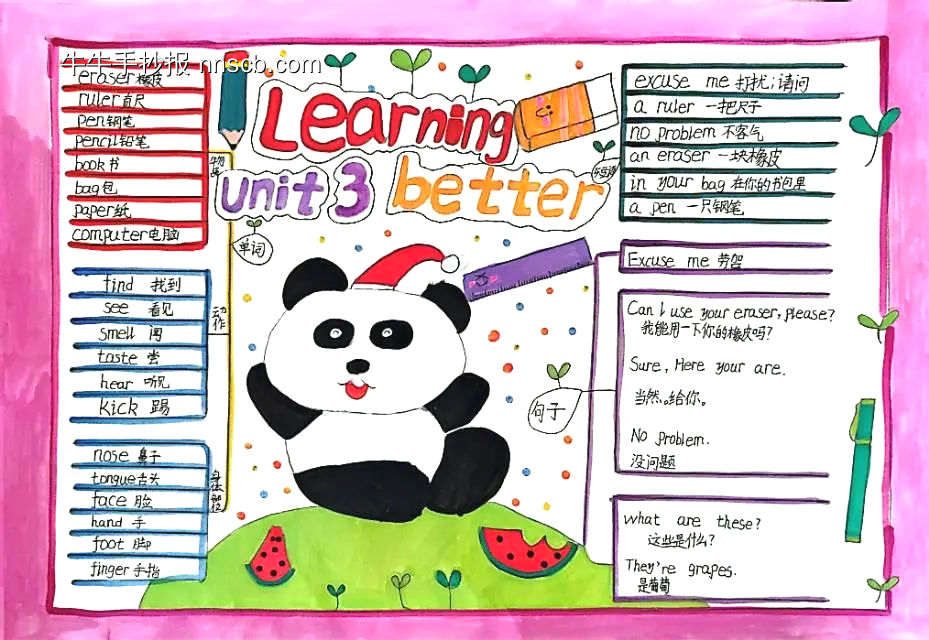 牛牛手抄报 nnscb.com
Learning
unit 3 better
eraser 橡皮
ruler 直尺
pen 钢笔
pencil 铅笔
book 书
bag 包
paper 纸
computer 电脑
物品
单词
find 找到
see 看见
smell 闻
taste 尝
hear 听见
kick 踢
动作
nose 鼻子
tongue 舌头
face 脸
hand 手
foot 脚
finger 手指
身体部位
excuse me 打扰;请问
a ruler 一把尺子
no problem 不客气
an eraser 一块橡皮
in your bag 在你的书包里
a pen 一只钢笔
句子
Excuse me 劳驾
Can I use your eraser, please?
我能用一下你的橡皮吗?
Sure, Here your are.
当然。给你。
No problem.
没问题
what are these?
这些是什么?
They're grapes.
是葡萄